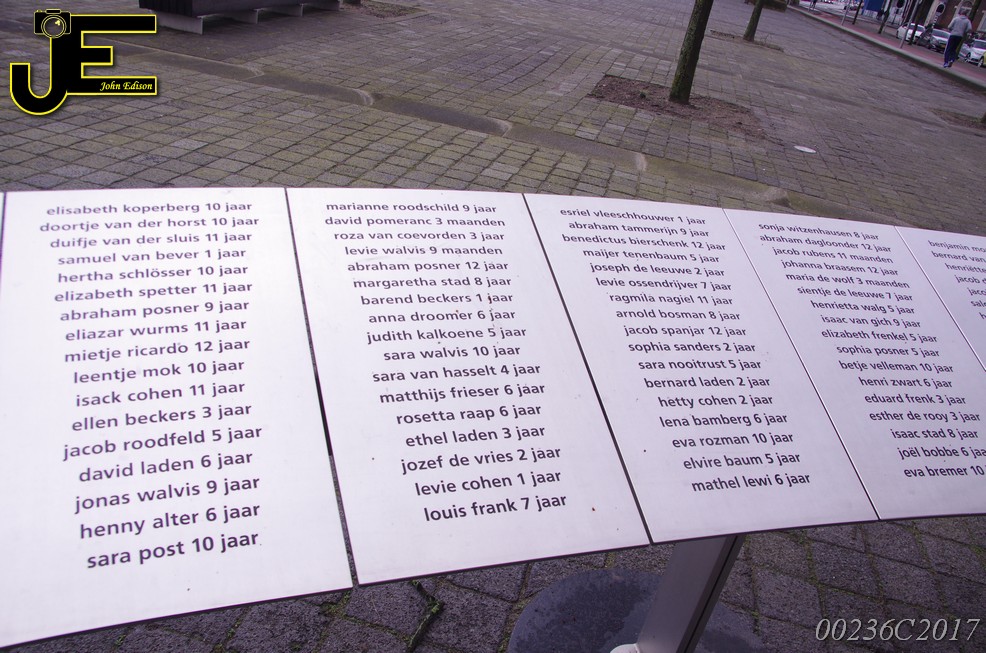 JE
John Edison
elisabeth koperberg 10 jaar
doortje van der horst 10 jaar
duifje van der sluis 11 jaar
samuel van bever 1 jaar
hertha schlösser 10 jaar
elizabeth spetter 11 jaar
abraham posner 9 jaar
eliazar wurms 11 jaar
mietje ricardo 12 jaar
leentje mok 10 jaar
isack cohen 11 jaar
ellen beckers 3 jaar
jacob roodfeld 5 jaar
david laden 6 jaar
jonas walvis 9 jaar
henny alter 6 jaar
sara post 10 jaar
marianne roodschild 9 jaar
david pomeranc 3 maanden
roza van coevorden 3 jaar
levie walvis 9 maanden
abraham posner 12 jaar
margaretha stad 8 jaar
barend beckers 1 jaar
anna droomer 6 jaar
judith kalkoene 5 jaar
sara walvis 10 jaar
sara van hasselt 4 jaar
matthijs frieser 6 jaar
rosetta raap 6 jaar
ethel laden 3 jaar
jozef de vries 2 jaar
levie cohen 1 jaar
louis frank 7 jaar
esriel vleeschhouwer 1 jaar
abraham tammerijn 9 jaar
benedictus bierschenk 12 jaar
maijer tenenbaum 5 jaar
joseph de leeuwe 2 jaar
levie ossendrijver 7 jaar
ragmila nagiel 11 jaar
arnold bosman 8 jaar
jacob spanjar 12 jaar
sophia sanders 2 jaar
sara nooitrust 5 jaar
bernard laden 2 jaar
hetty cohen 2 jaar
lena bamberg 6 jaar
eva rozman 10 jaar
elvire baum 5 jaar
mathel lewi 6 jaar
sonja witzenhausen 8 jaar
abraham dagloonder 12 jaar
jacob rubens 11 maanden
johanna braasem 12 jaar
maria de wolf 3 maanden
sientje de leeuwe 7 jaar
henrietta walg 5 jaar
isaac van gich 9 jaar
elizabeth frenkel 5 jaar
sophia posner 5 jaar
betje velleman 10 jaar
henri zwart 6 jaar
eduard frenk 3 jaar
esther de rooy 3 jaar
isaac stad 8 jaar
joël bobbe 6 jaa
eva bremer 10
benjamin mo
bernard van
henriette
jacob
00236C2017